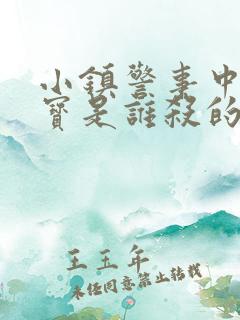 小鎮警事中
寶是誰殺的
王五年
未经同意禁止转载